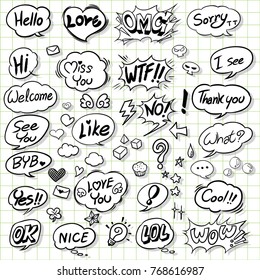 Hello
LOVE
OMG
Sorry..
Hi
Miss
You
WTF!!
I see
Welcome
NO!
!
Thank you
See
You
Like
?
What?
BYB.
LOVE
YOU
?
...
Yes!!
!
Cool!!
OK
NICE
LOL
WOW
shutterstock.com · 768616987